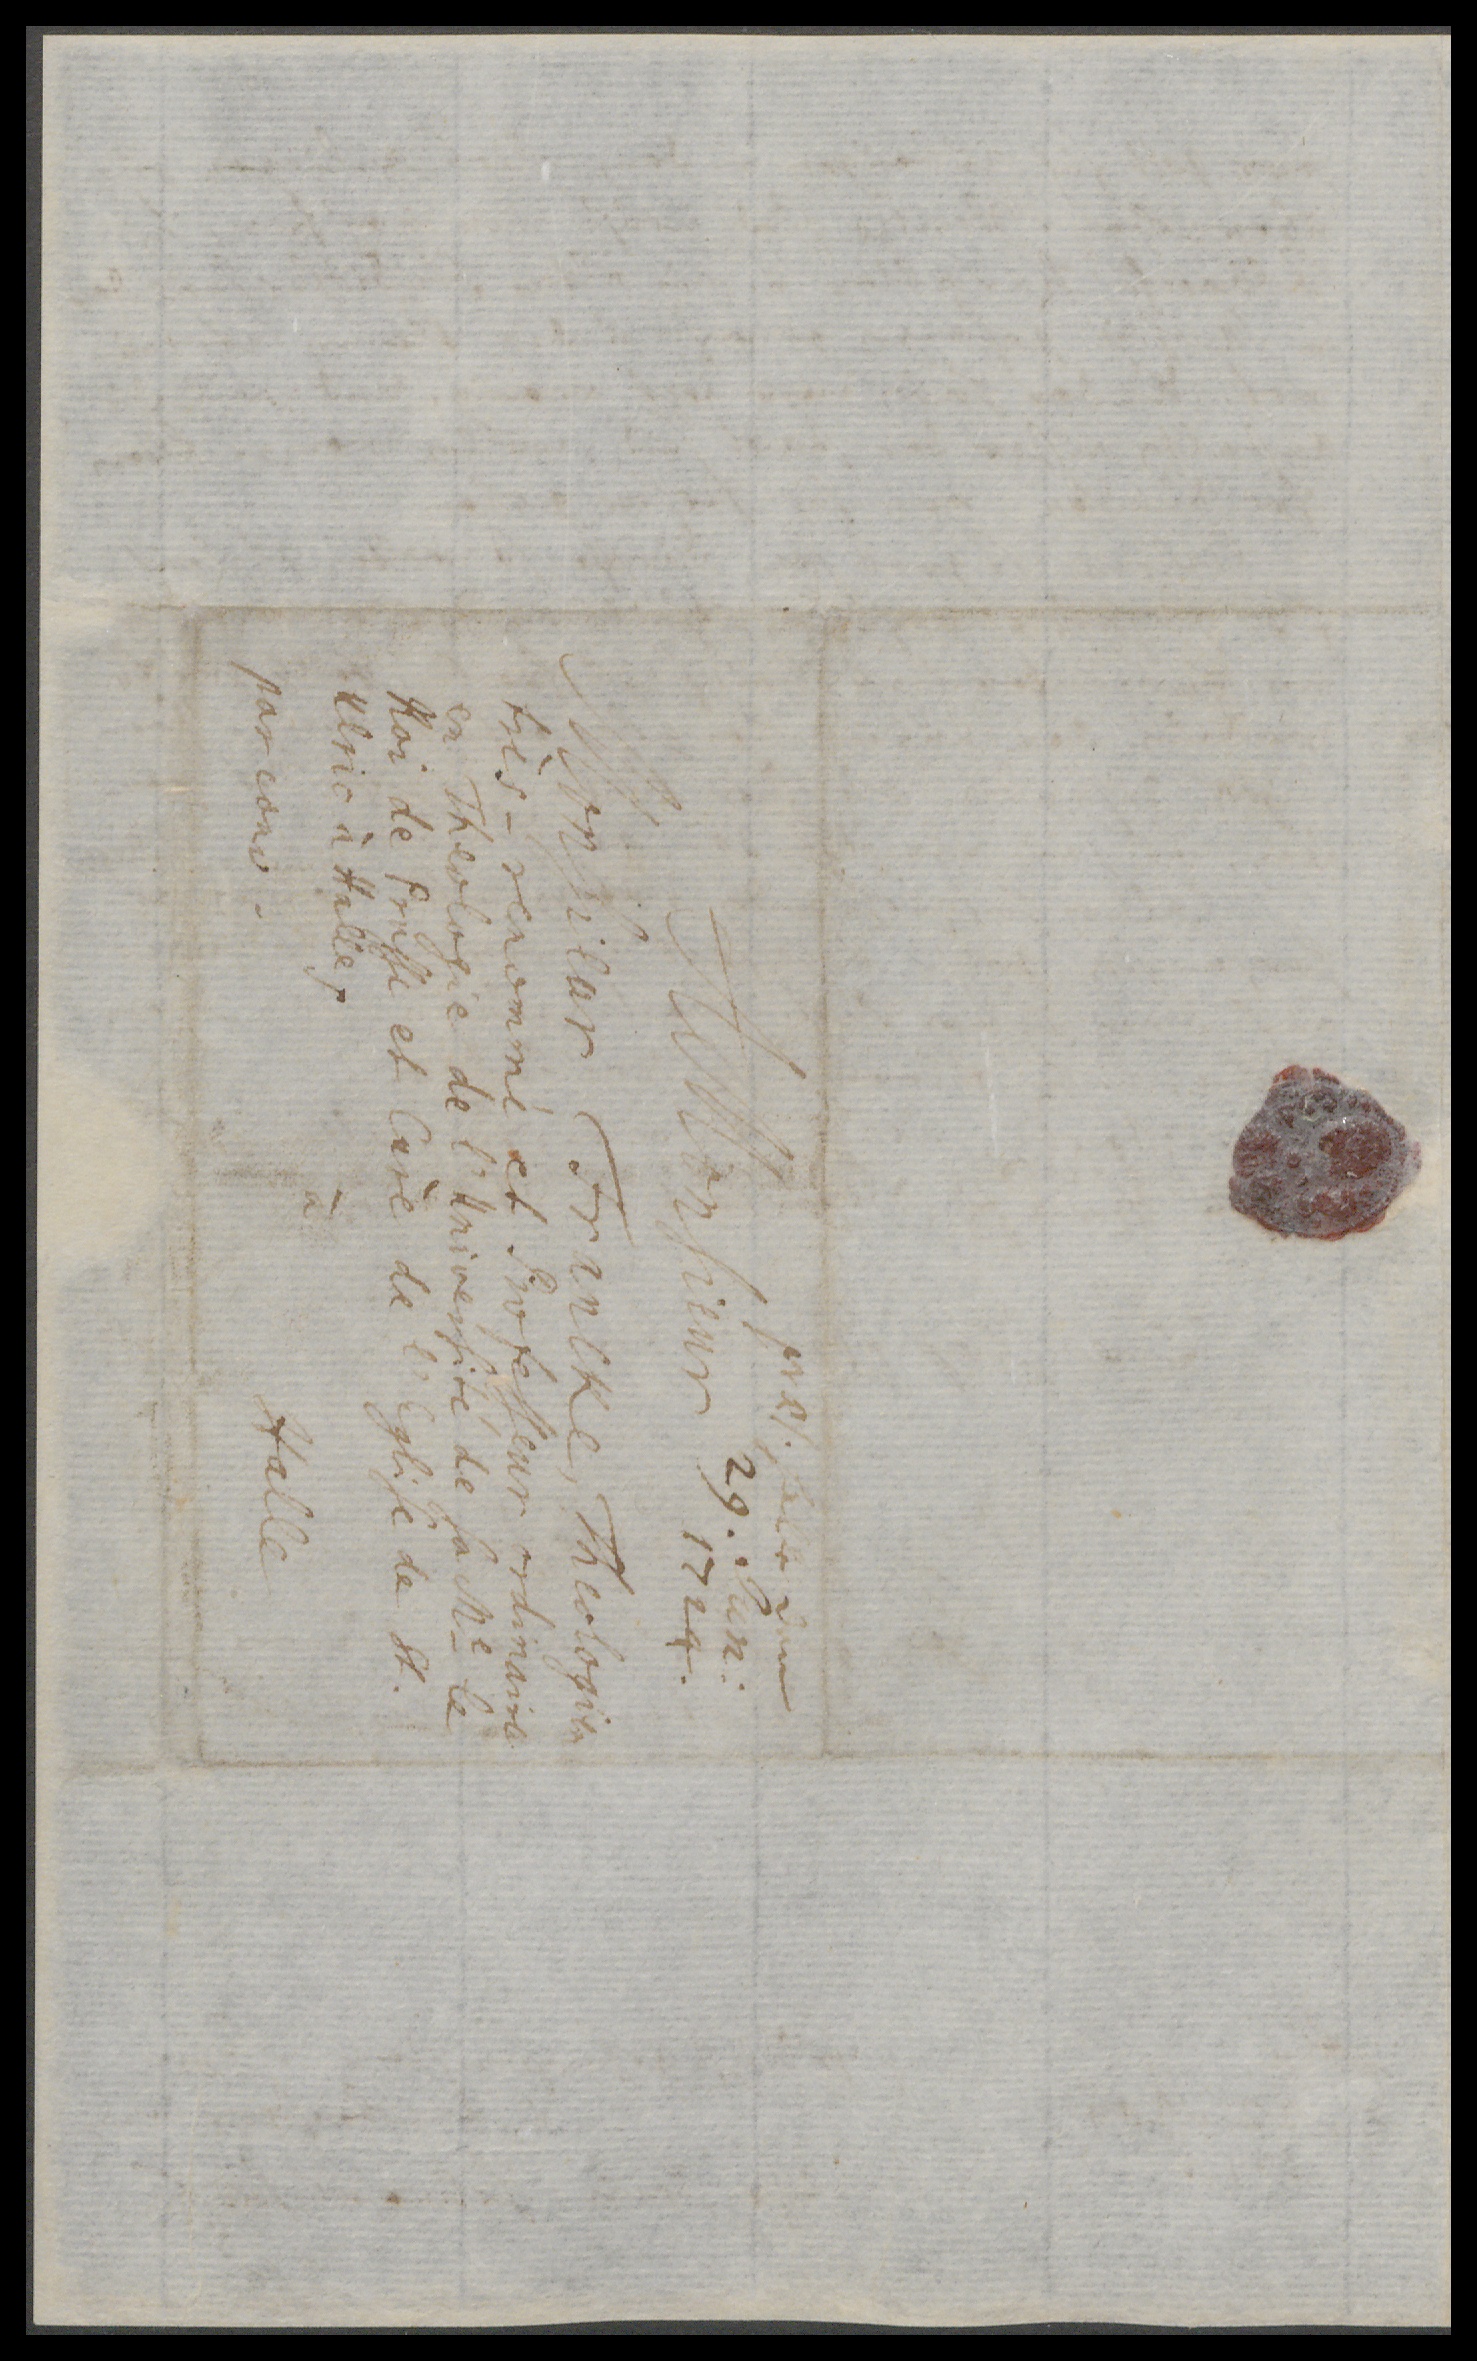 A Monsieur
Monsieur Francke, Theologien
très-renommé et Professeur ordinaire
en Theologie de l'Université de sa M^e le
Roi de Prusse et Curè de l'Eglise de St.
Ulric à Halle,
à
par couv.
Halle
29. Jun:
1724.